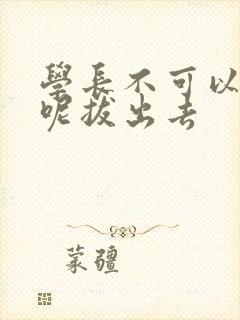 學長不可以
呢拔出去
蒙疆